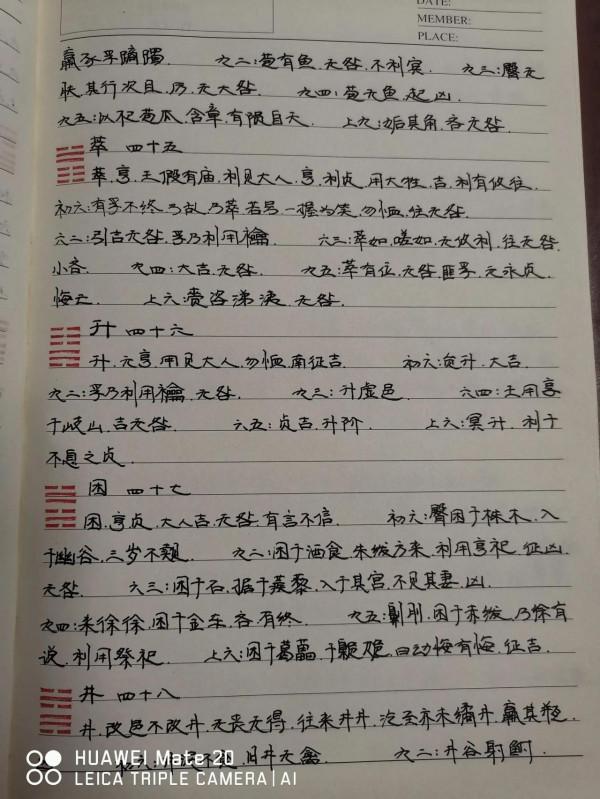 DATE:
MEMBER:
PLACE:
羸豕孚蹢躅. 九二:苞有鱼.无咎.不利宾. 九三:臀无
肤.其行次且.厉.无大咎. 九四:苞无鱼.起凶.
九五:以杞苞瓜.含章.有陨自天. 上九:姤其角.吝.无咎.
萃 四十五
萃.亨.王假有庙.利见大人.亨.利贞.用大牲.吉.利有攸往.
初六:有孚不终.乃乱乃萃.若号.一握为笑.勿恤.往无咎.
六二:引吉无咎.孚乃利用禴. 六三:萃如.嗟如.无攸利.往无咎.
小吝. 九四:大吉.无咎. 九五:萃有位.无咎.匪孚.元永贞.
悔亡. 上六:赍咨涕洟.无咎.
升 四十六
升.元亨.用见大人.勿恤.南征吉. 初六:允升.大吉.
九二:孚乃利用禴.无咎. 九三:升虚邑. 六四:王用亨
于岐山.吉无咎. 六五:贞吉.升阶. 上六:冥升.利于
不息之贞.
困 四十七
困.亨贞.大人吉.无咎.有言不信. 初六:臀困于株木.入
于幽谷.三岁不觌. 九二:困于酒食.朱绂方来.利用亨祀.征凶.
无咎. 六三:困于石.据于蒺藜.入于其宫.不见其妻.凶.
九四:来徐徐.困于金车.吝.有终. 九五:劓刖.困于赤绂.乃徐有
说.利用祭祀. 上六:困于葛藟.于臲卼.曰动悔有悔.征吉.
井 四十八
井.改邑不改井.无丧无得.往来井井.汔至亦未繘井.羸其瓶.
旧井无禽. 九二:井谷射鲋.
HUAWEI Mate 20
LEICA TRIPLE CAMERA | AI